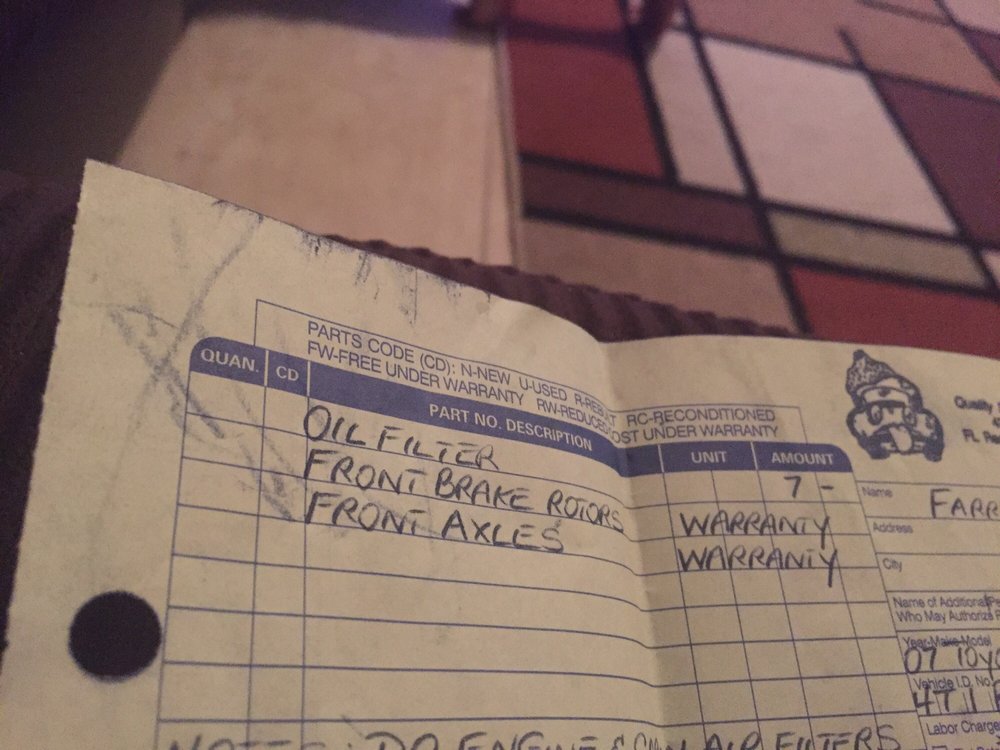 PARTS CODE (CD): N-NEW U-USED R-REBUILT RC-RECONDITIONED
FW-FREE UNDER WARRANTY RW-REDUCED COST UNDER WARRANTY
QUAN. CD PART NO. DESCRIPTION UNIT AMOUNT
OIL FILTER 7 -
FRONT BRAKE ROTORS WARRANTY
FRONT AXLES WARRANTY
NOTES: DO ENGINE & AIR FILTERS
Quality
FL
Name FARR
Address
City
Name of Additional
Who May Authorize
Year-Make-Model
07 TOYO
Vehicle I.D. No.
4T1
Labor Charge